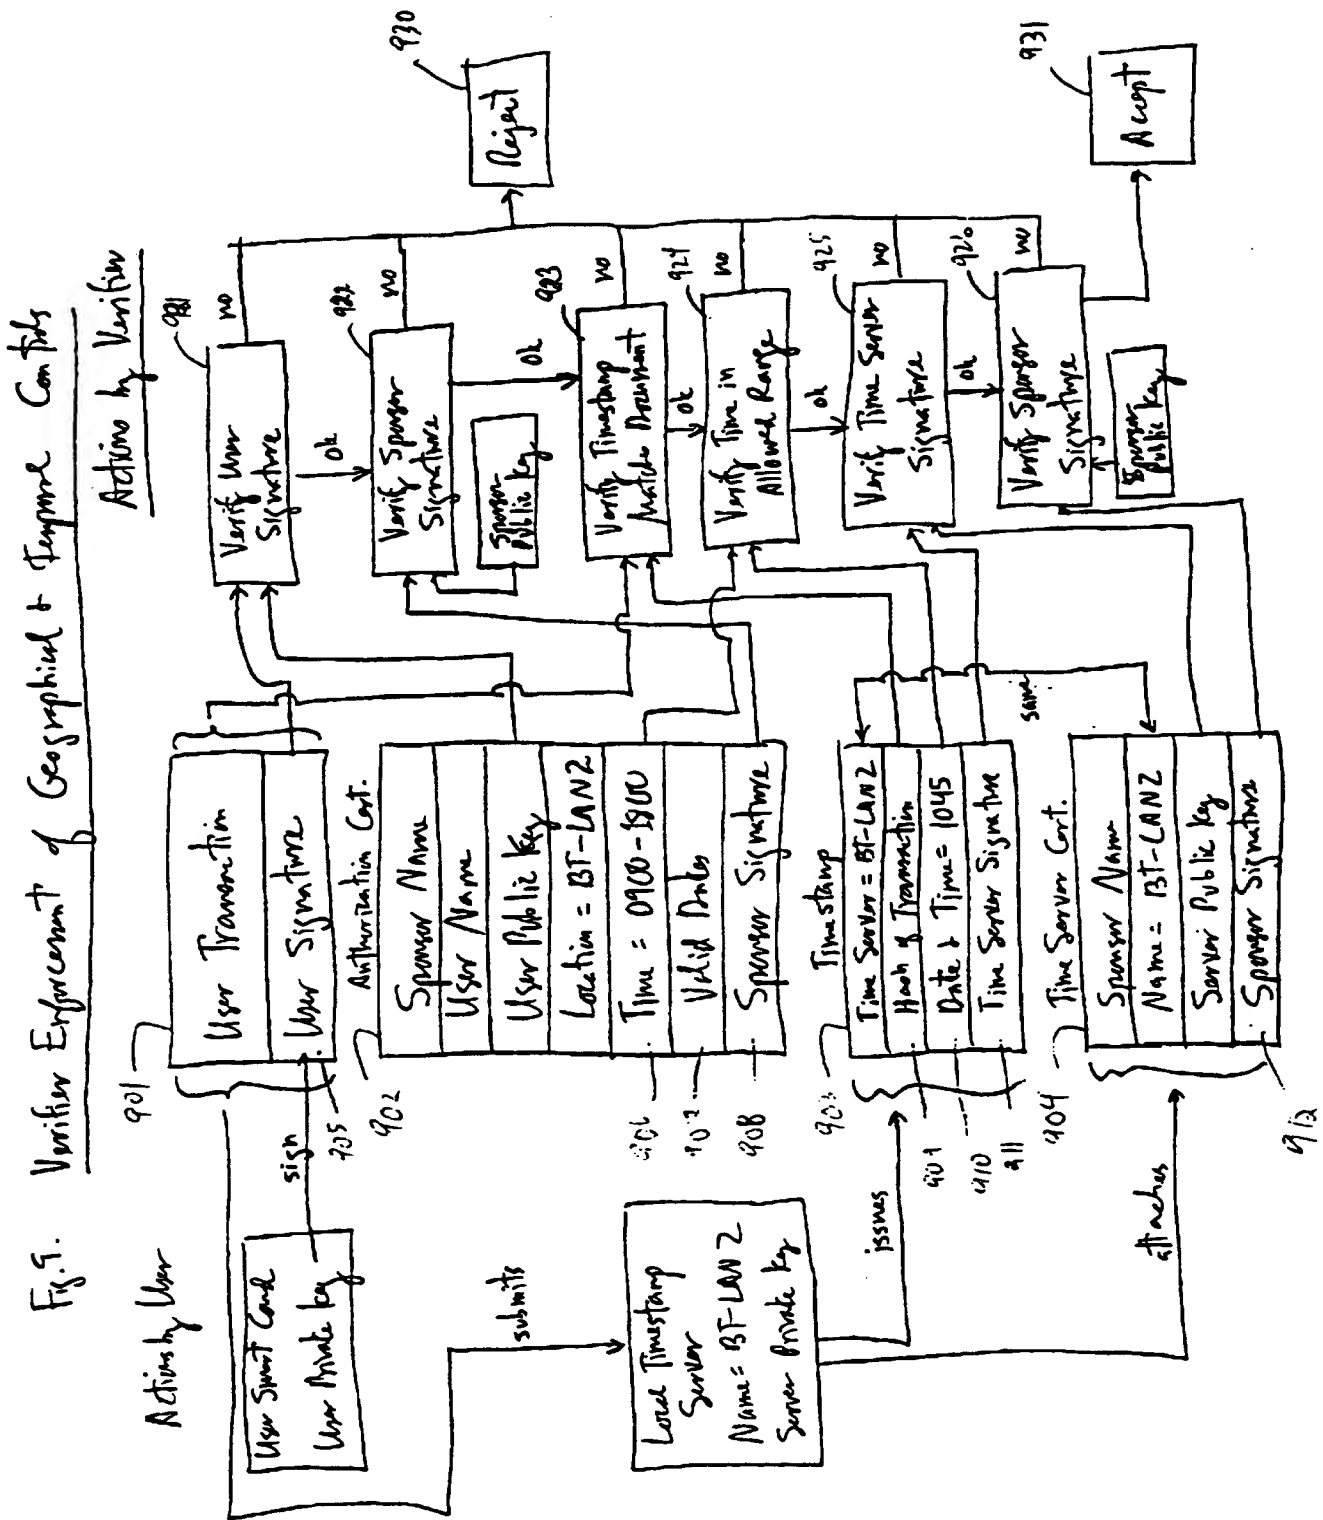 Fig. 9. Verifier Enforcement of Geographical & Temporal Controls
Actions by User
Actions by Verifier
User Smart Card
User Private Key
sign
submits
Local Timestamp
Server
Name = BT-LAN2
Server Private Key
issues
attaches
901
User Transaction
User Signature
902
Authorization Cert.
Sponsor Name
User Name
User Public Key
Location = BT-LAN2
Time = 0900-1800
Valid Dates
Sponsor Signature
908
903
Timestamp
Time Server = BT-LAN2
Hash of Transaction
Date & Time = 1045
Time Server Signature
910
911
same
904
Time Server Cert.
Sponsor Name
Name = BT-LAN2
Server Public Key
Sponsor Signature
912
921
Verify User
Signature
no
ok
922
Verify Sponsor
Signature
no
ok
Sponsor
Public Key
923
Verify Timestamp
Matches Document
no
ok
924
Verify Time in
Allowed Range
no
ok
925
Verify Time Server
Signature
no
ok
926
Verify Sponsor
Signature
no
Sponsor
Public Key
930
Reject
931
Accept